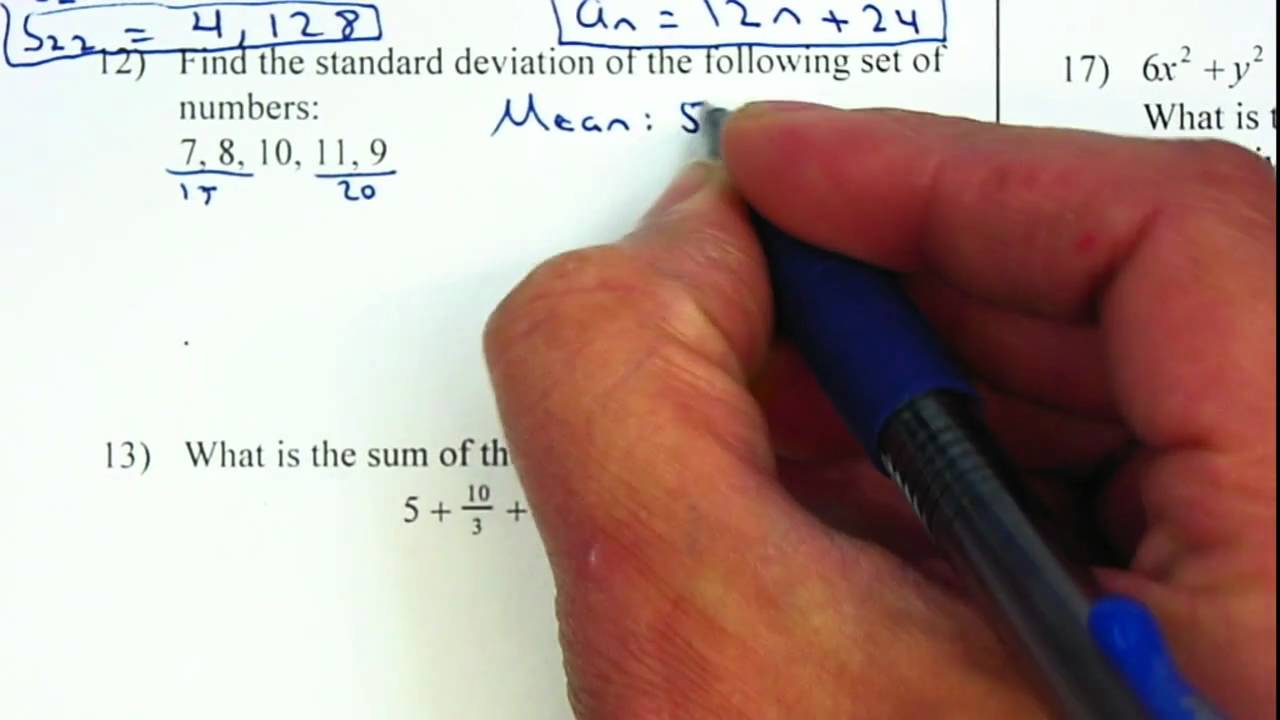 S₂₂ = 4,128
aₙ = 12n + 24
12) Find the standard deviation of the following set of
numbers:
Mean: 5
7, 8, 10, 11, 9
15 20
13) What is the sum of th
5 + 10/3 +
17) 6x² + y²
What is t